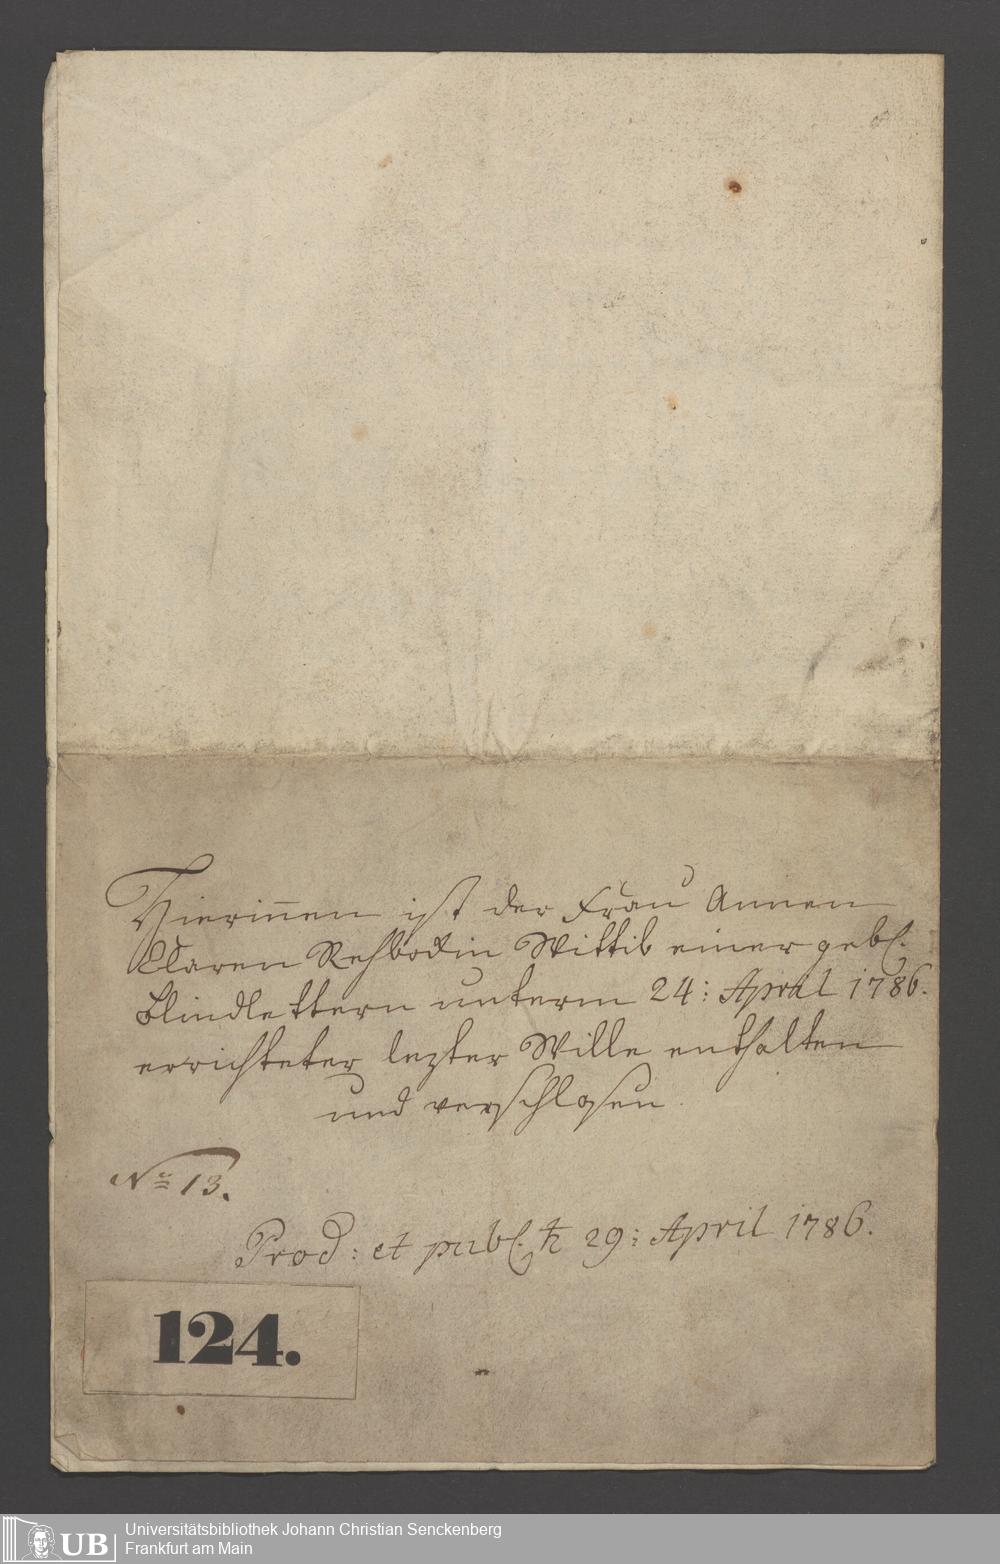 Hierinnen ist der Frau Annen
Claren Rehbockin Wittib einer gebl.
Blindlettern unterm 24: April 1786.
errichteter lezter Wille enthalten
und verschlosen.
No 13.
Prod: et publ. ♄ 29: April 1786.
124.
UB
Universitätsbibliothek Johann Christian Senckenberg
Frankfurt am Main